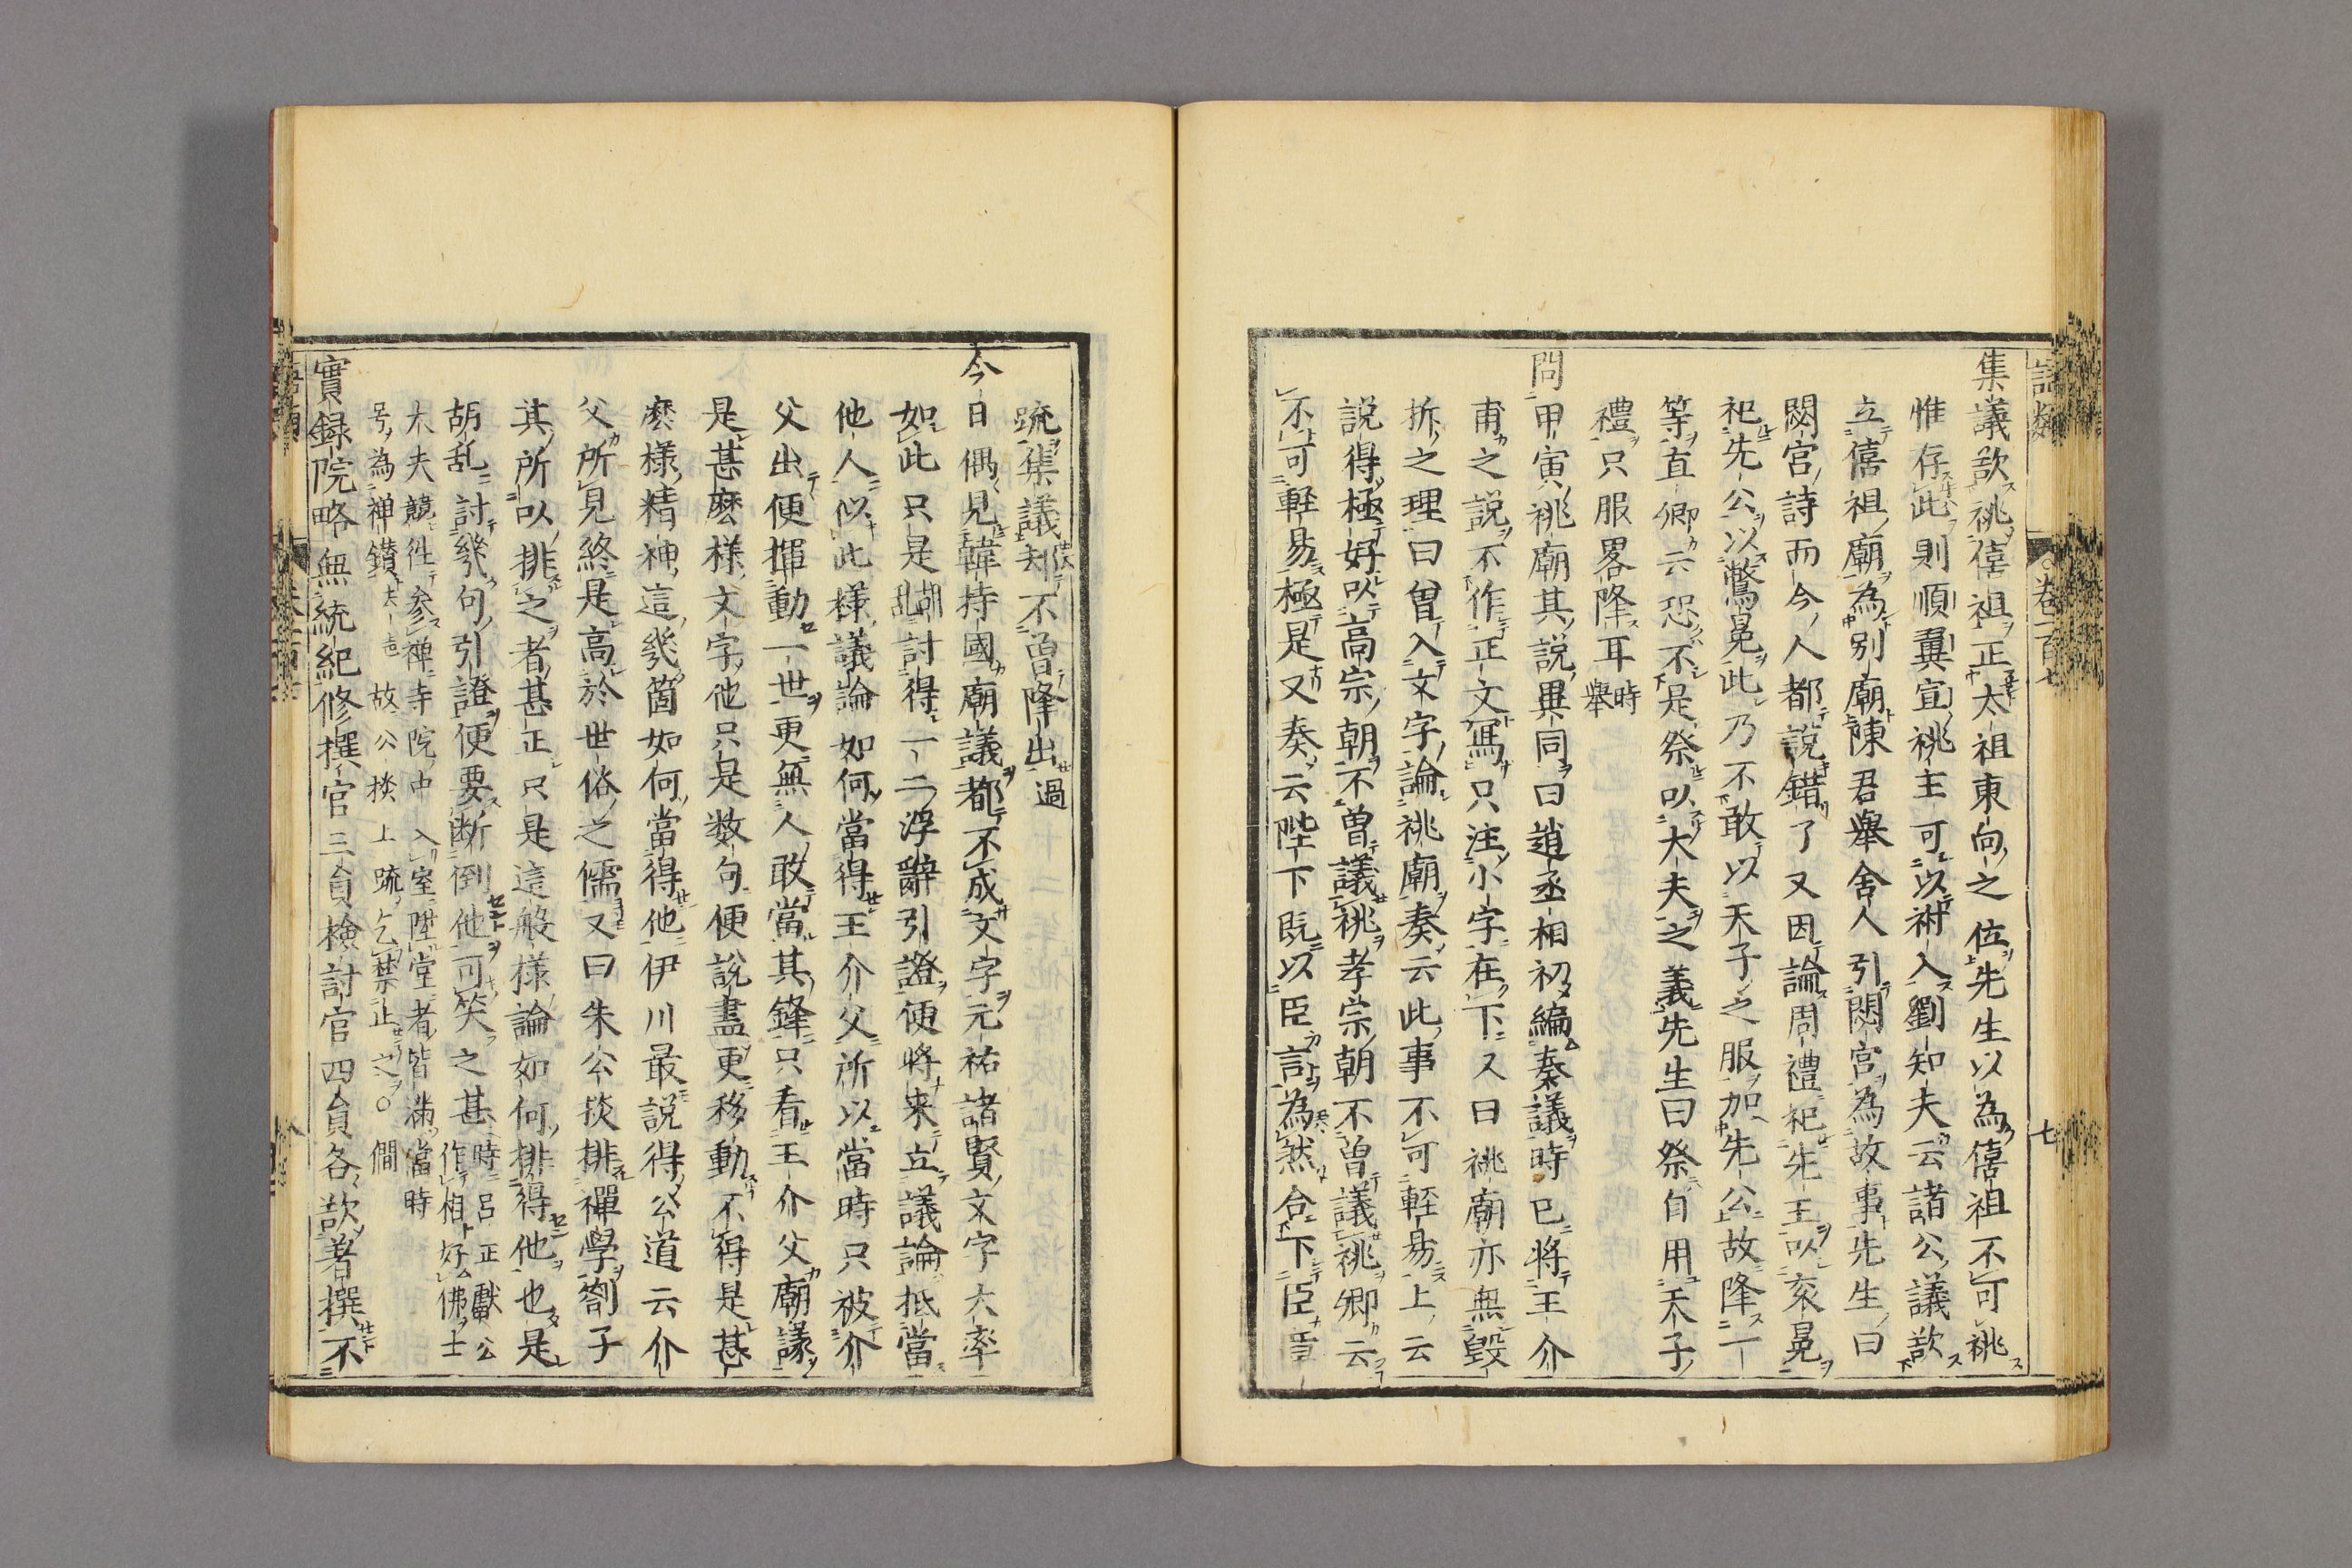 語類
卷一百七
七
集議欲祧僖祖正太祖東向之位先生以為僖祖不可祧
惟存此則順翼宣祧主可以祔入劉知夫云諸公議欲
立僖祖廟為別廟陳君舉舍人引閟宮為故事先生曰
閟宮詩而今人都說錯了又因論周禮祀先王以衮冕
祀先公以鷩冕此乃不敢以天子之服加先公故降一
等直卿云恐不是祭以大夫之義先生曰祭自用天子
禮只服畧降耳時舉
問甲寅祧廟其說異同曰趙丞相初編奏議時已將王介
甫之說不作正文寫只注小字在下又曰祧廟亦無毀
拆之理曰曾入文字論祧廟奏云此事不可輕易上云
說得極好以高宗朝不曾議祧孝宗朝不曾議祧卿云
不可輕易極是又奏云陛下既以臣言為然合下臣
疏集議却不曾降出過
今日偶見韓持國廟議都不成文字元祐諸賢文字大率
如此只是胡亂討得一二浮辭引證便將來立議論抵當
他人似此樣議論如何當得王介父所以當時只被介
父出便揮動一世更無人敢當其鋒只看王介父廟議
是甚麽樣文字他只是數句便說盡更移動不得是甚
麽樣精神這幾箇如何當得他伊川最說得公道云介
父所見終是高於世俗之儒又曰朱公掞排禪學劄子
其所以排之者甚正只是這般樣論如何排得他也是
胡乱討幾句引證便要断倒他可笑之甚時呂正獻公
作相好佛士
大夫競往參禪寺院中入室陞堂者皆滿當時
号為禪鑽去声故公掞上疏乞禁止之○僩
實錄院略無統紀修撰官三員檢討官四員各欲著撰不